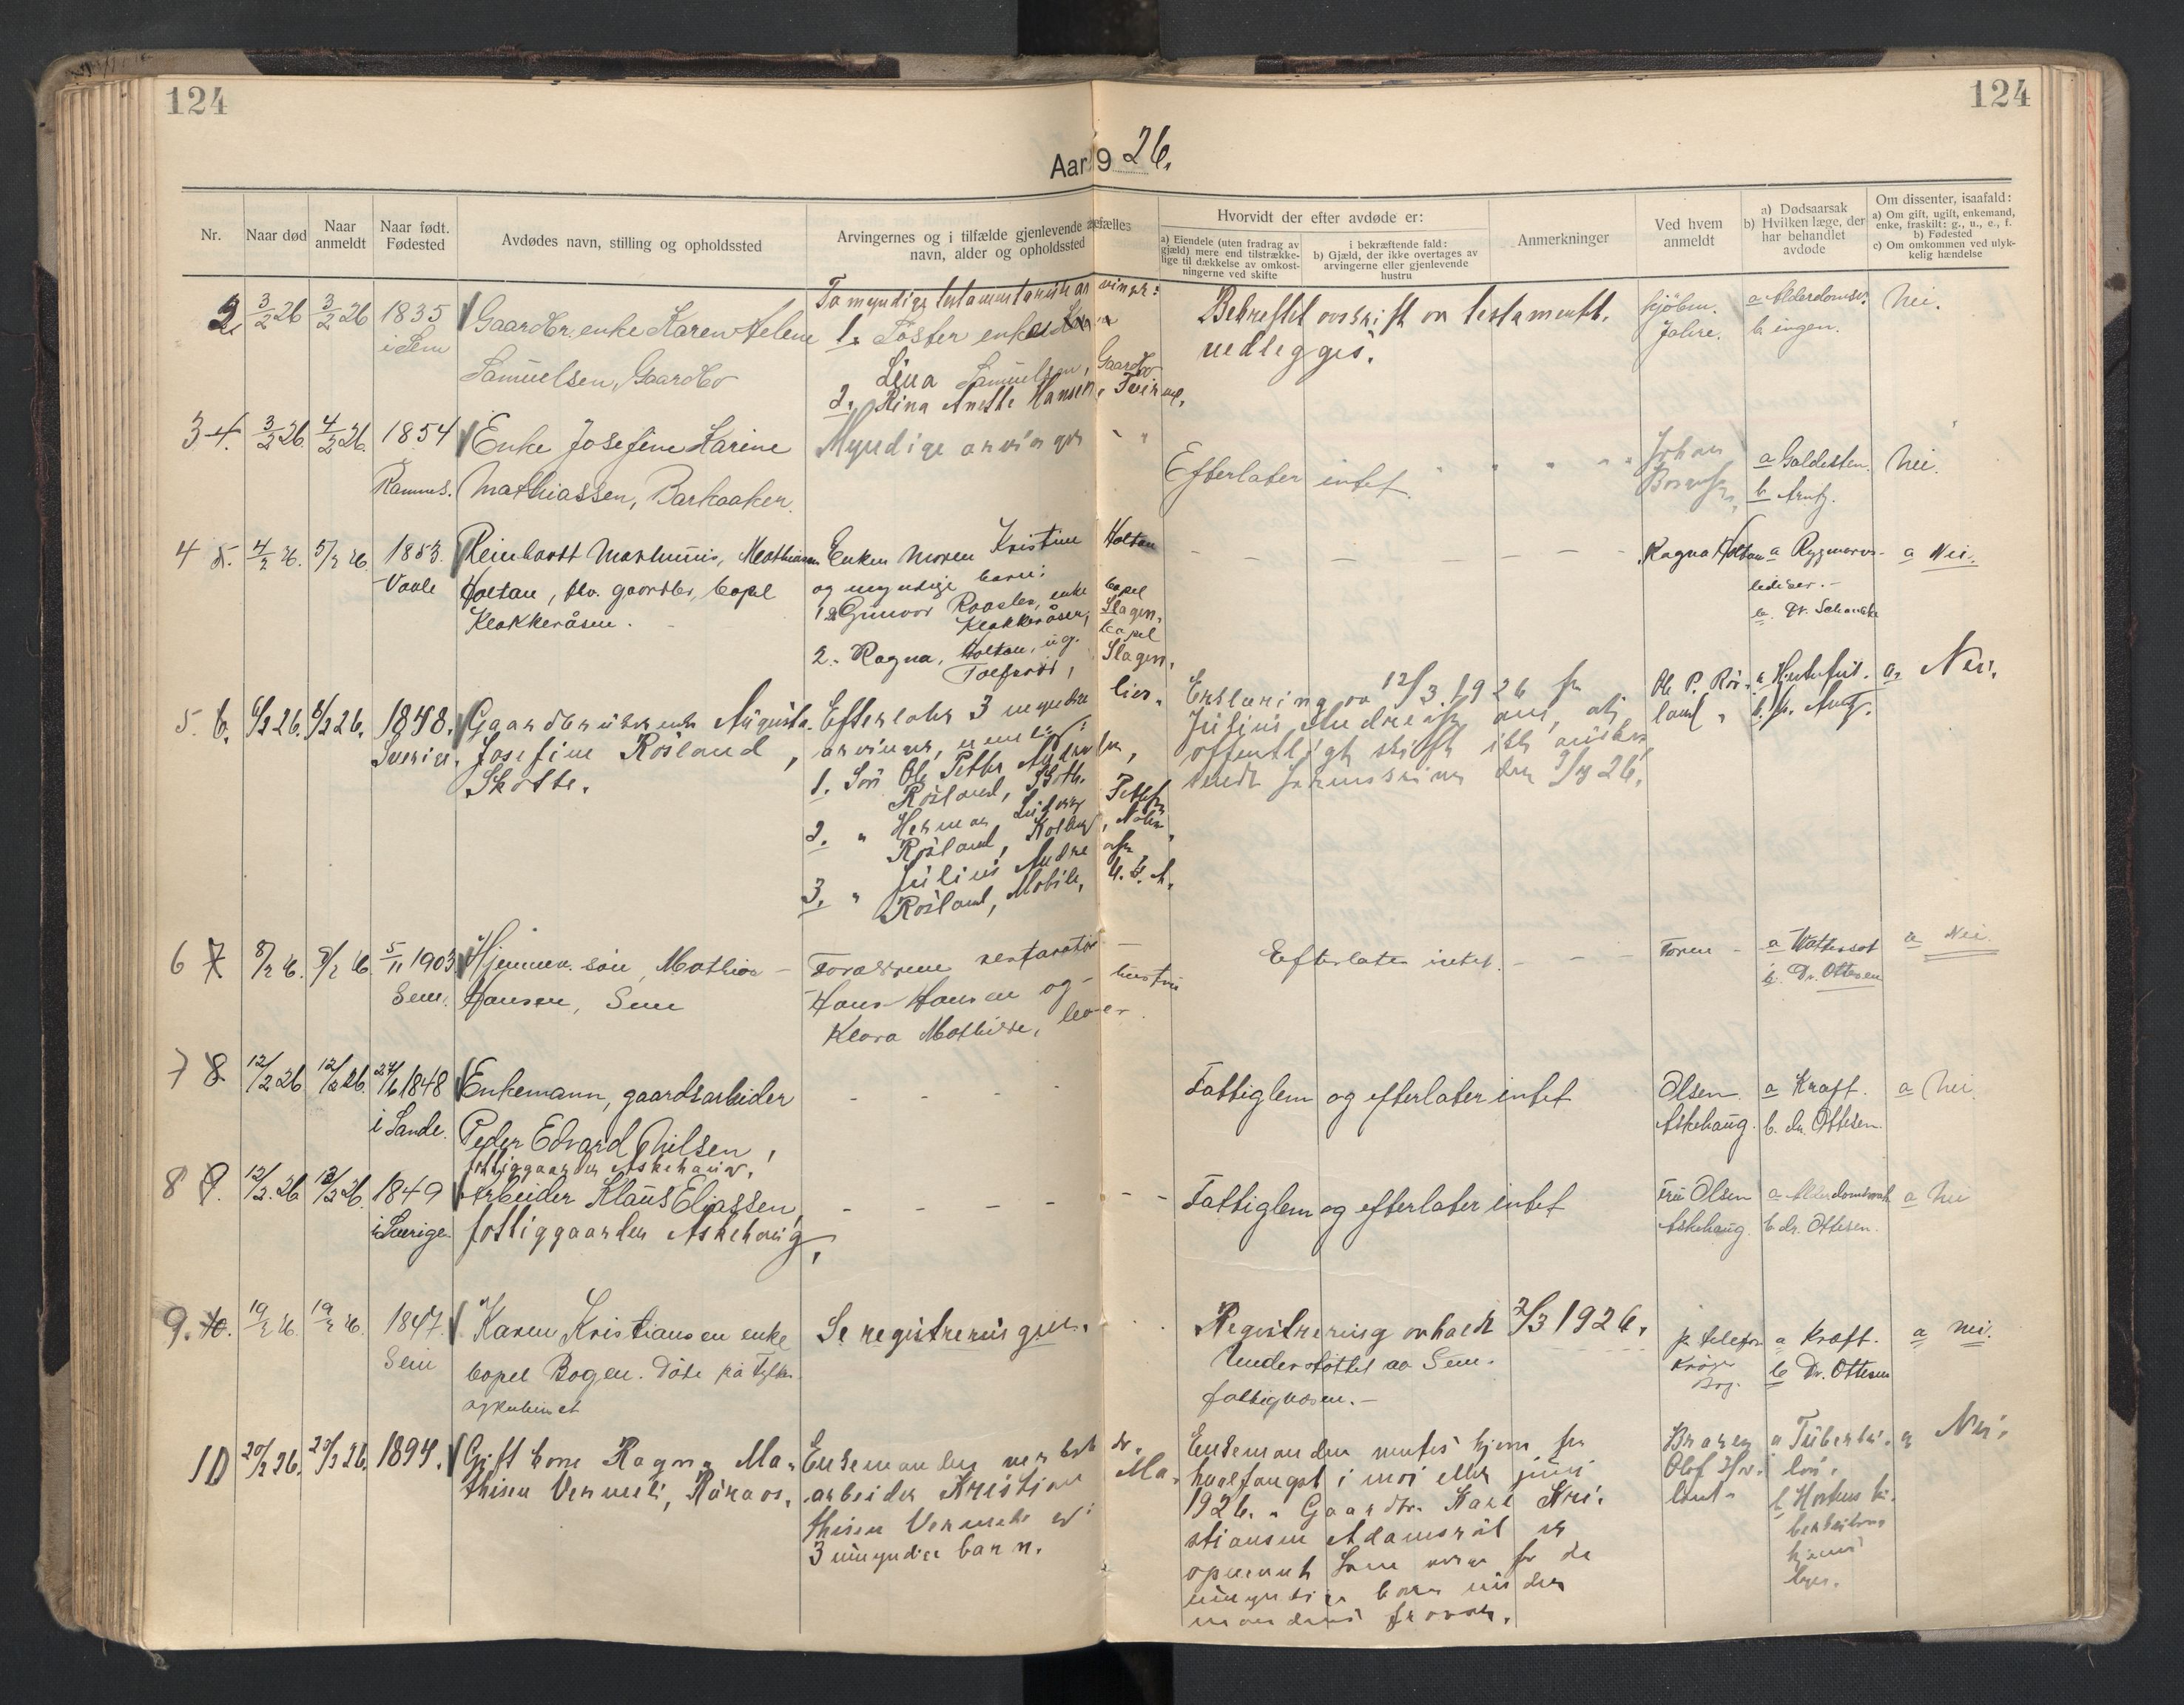 124
124
Aar 19 26.
Nr.
Naar død
Naar anmeldt
Naar født. Fødested
Avdødes navn, stilling og opholdssted
Arvingernes og i tilfælde gjenlevende ægtefælles
navn, alder og opholdssted
Hvorvidt der efter avdøde er:
a) Eiendele (uten fradrag av
gjæld) mere end tilstrække-
lige til dækkelse av omkost-
ningerne ved skifte
i bekræftende fald:
b) Gjæld, der ikke overtages av
arvingerne eller gjenlevende
hustru
Anmerkninger
Ved hvem
anmeldt
a) Dødsaarsak
b) Hvilken læge, der
har behandlet
avdøde
Om dissenter, isaafald:
a) Om gift, ugift, enkemand,
enke, fraskilt: g., u., e., f.
b) Fødested
c) Om omkommen ved ulyk-
kelig hændelse
2. 3/2 26 3/2 26 1835
i Sem
Gaardbr. enke Karen Helene
Samuelsen, Gaardbo
To myndige testamentariske arvinger:
1. Søster enke
Lina Samuelsen, Gaardbo
2. Rina Anethe Hansen,
Bekreftet avskrift av testament.
vedlegges.
Kjøbm.
Jahre.
a Alderdomsv.
b. ingen.
Nei.
3 4. 3/2 26. 4/2 26. 1854
Ramnes.
Enke Josefine Karine
Mathiassen, Barkaaker.
Myndige arvinger " "
Efterlater intet.
Johan
a Galdesten.
b Arntz.
Nei.
4 5. 4/2 26. 5/2 26 1853.
Vaale
Reinhardt Marthinius, Mathiasen
Holtan, fhv. gaardbr., Capel
Klokkeråsen.
Enken Maren Kristine Holtan
og myndige barn:
1. Gunvor Raastad, enke Capel
Klokkeråsen, Slagen.
2. Ragna, Holtan, ug. Capel
Slagen.
Ragna Holtan
a Rygmarvs-
lidelser.-
b. Dr. Schanche
a Nei.
5. 6. 6/2 26. 8/2 26. 1848.
Sverige.
Gaardbrukerenke Augusta
Josefine Røsland,
Skotte.
Efterlater 3 myndige
arvinger, nemlig:
1. Søn Ole Petter Andreas
Røsland, Skotte.
2. " Herman Ludvig
Røsland,
3. " Julius Andreas
Røsland, Mobile, U.S.A.
Erklæring av 12/3 1926 fra
Julius Andreas om, at
offentligt skifte ikke ønskes
sendt sorenskriveren den
Ole P. Røs-
land
a Hjertefeil.
b. dr. Arntz.
a. Nei.
6 7 8/2 26. 9/2 26. 5/11 1903
Sem.
Hjemmev. søn, Mathias
Hansen, Sem
Forældrene reparatør
Hans Hansen og hustru
Klara Mathilde, lever.
Efterlater intet.
Faren
a Vattersot
b. Dr. Ottesen
a Nei
7 8. 12/2 26 12/2 26. 24/6 1848
i Sande.
Enkemann, gaardsarbeider
Peder Edvard Nilsen,
fattiggaarden Askehaug.
Fattiglem og efterlater intet
Olsen.
Askehaug.
a Kraft.
b. dr. Ottesen.
a Nei.
8 9. 12/2. 26 12/2 26. 1849
i Sverige
Arbeider Klaus Eliassen,
fattiggaarden Askehaug,
Fattiglem og efterlater intet
Fru Olsen
Askehaug.
a Alderdomssvak.
b. dr. Ottesen.
a Nei
9. 10. 19/2 26. 19/2 26. 1847.
Sem
Karen Kristiansen enke
Capel Bogen. Døde på Fylkes-
sykehuset
Se registreringen.
Registrering avholdt 2/3 1926.
Understøttet av Sem
fattigvæsen.-
pr. telefon
a Kraft.
b Dr. Ottesen
a Nei.
10 20/2 26. 20/2 26. 1894.
Gift kone Ragna Ma-
thisen Vermeli, Råraas.
Enkemanden
arbeider Kristian Ma-
thisen Vermeli og
3 umyndige barn.
Enkemanden ventes hjem fra
hvalfangst i mai eller juni
1926. Gaardbr. Karl Kri-
stiansen Adamsrød er
opnevnt som verge for de
umyndige barn under
mandens fravær.
Broren
Olof
a Tuberku-
lose.
b Hortens tu-
berkulose
hjems
læge.
a Nei.